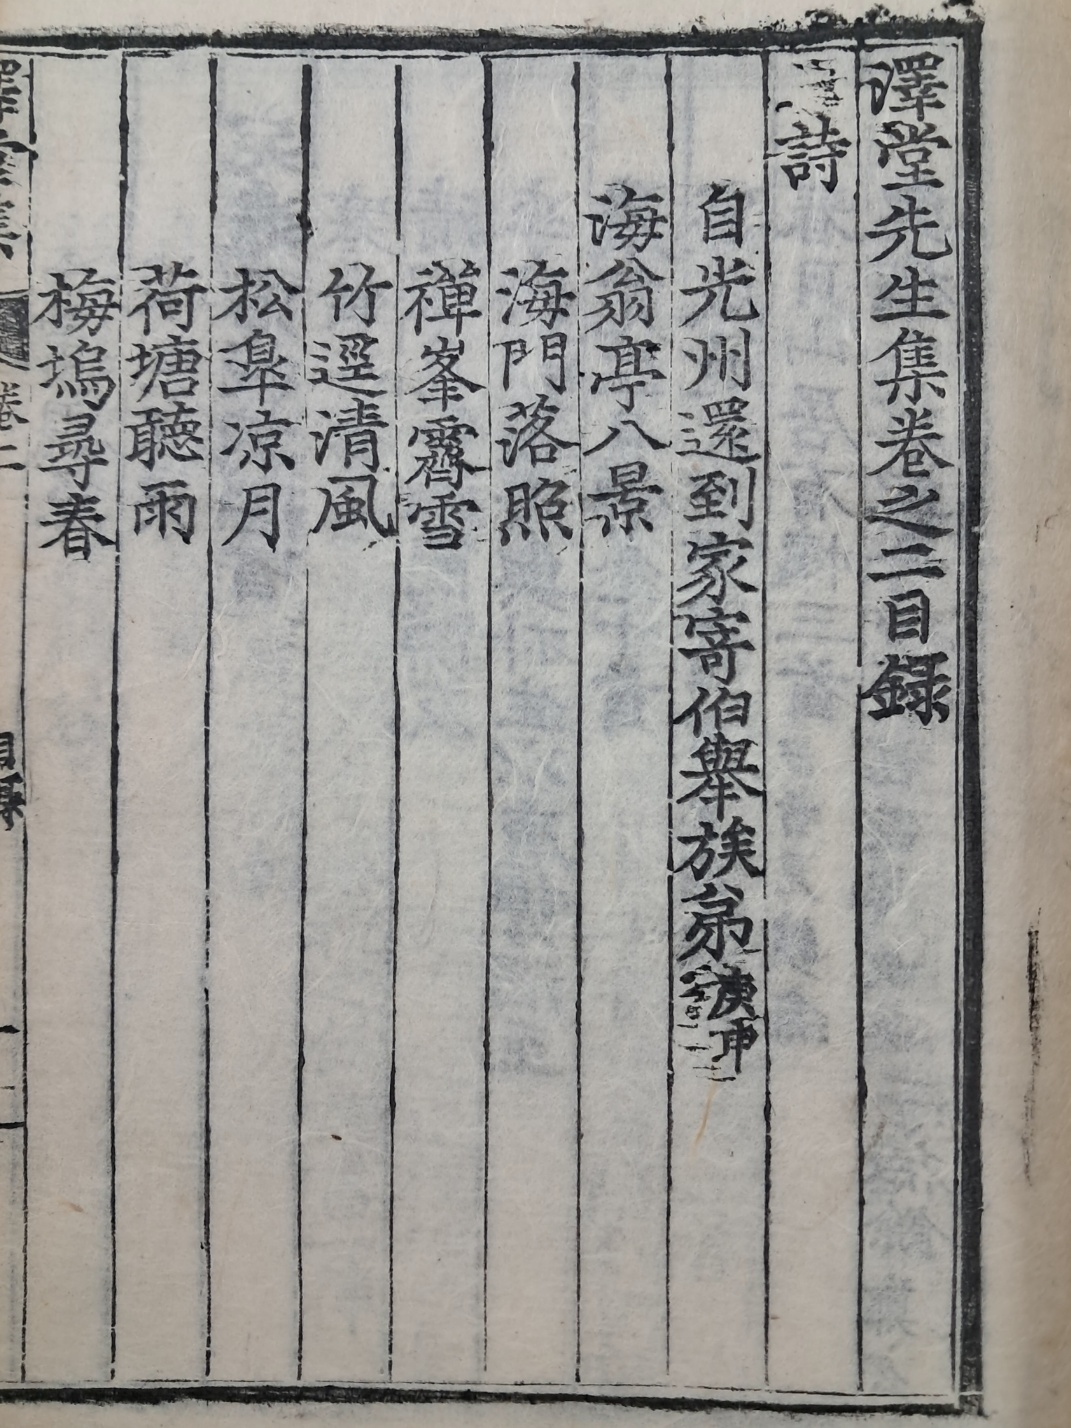 澤堂先生集卷之二目録
詩
自光州還到家寄伯舉族弟庚申
海翁亭八景
海門落照
禪峯霽雪
竹逕清風
松皐凉月
荷塘聽雨
梅塢尋春
澤堂集 卷二 目録 一